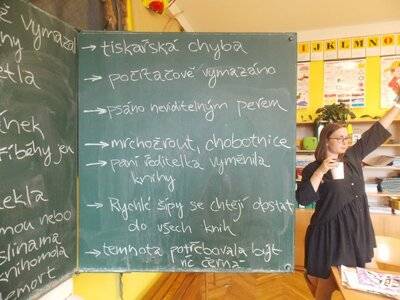 vymazal
ny
etla
ínek
říběhy jen
ekla
mou nebo
slinama
knihomola
emort
→ tiskařská chyba
→ počítačově vymazáno
→ psáno neviditelným perem
→ mrchožrout, chobotnice
→ paní ředitelka vyměnila
knihy
→ Rychlé šípy se chtějí dostat
do všech knih
→ temnota potřebovala být
víc černá
I J K L M N O